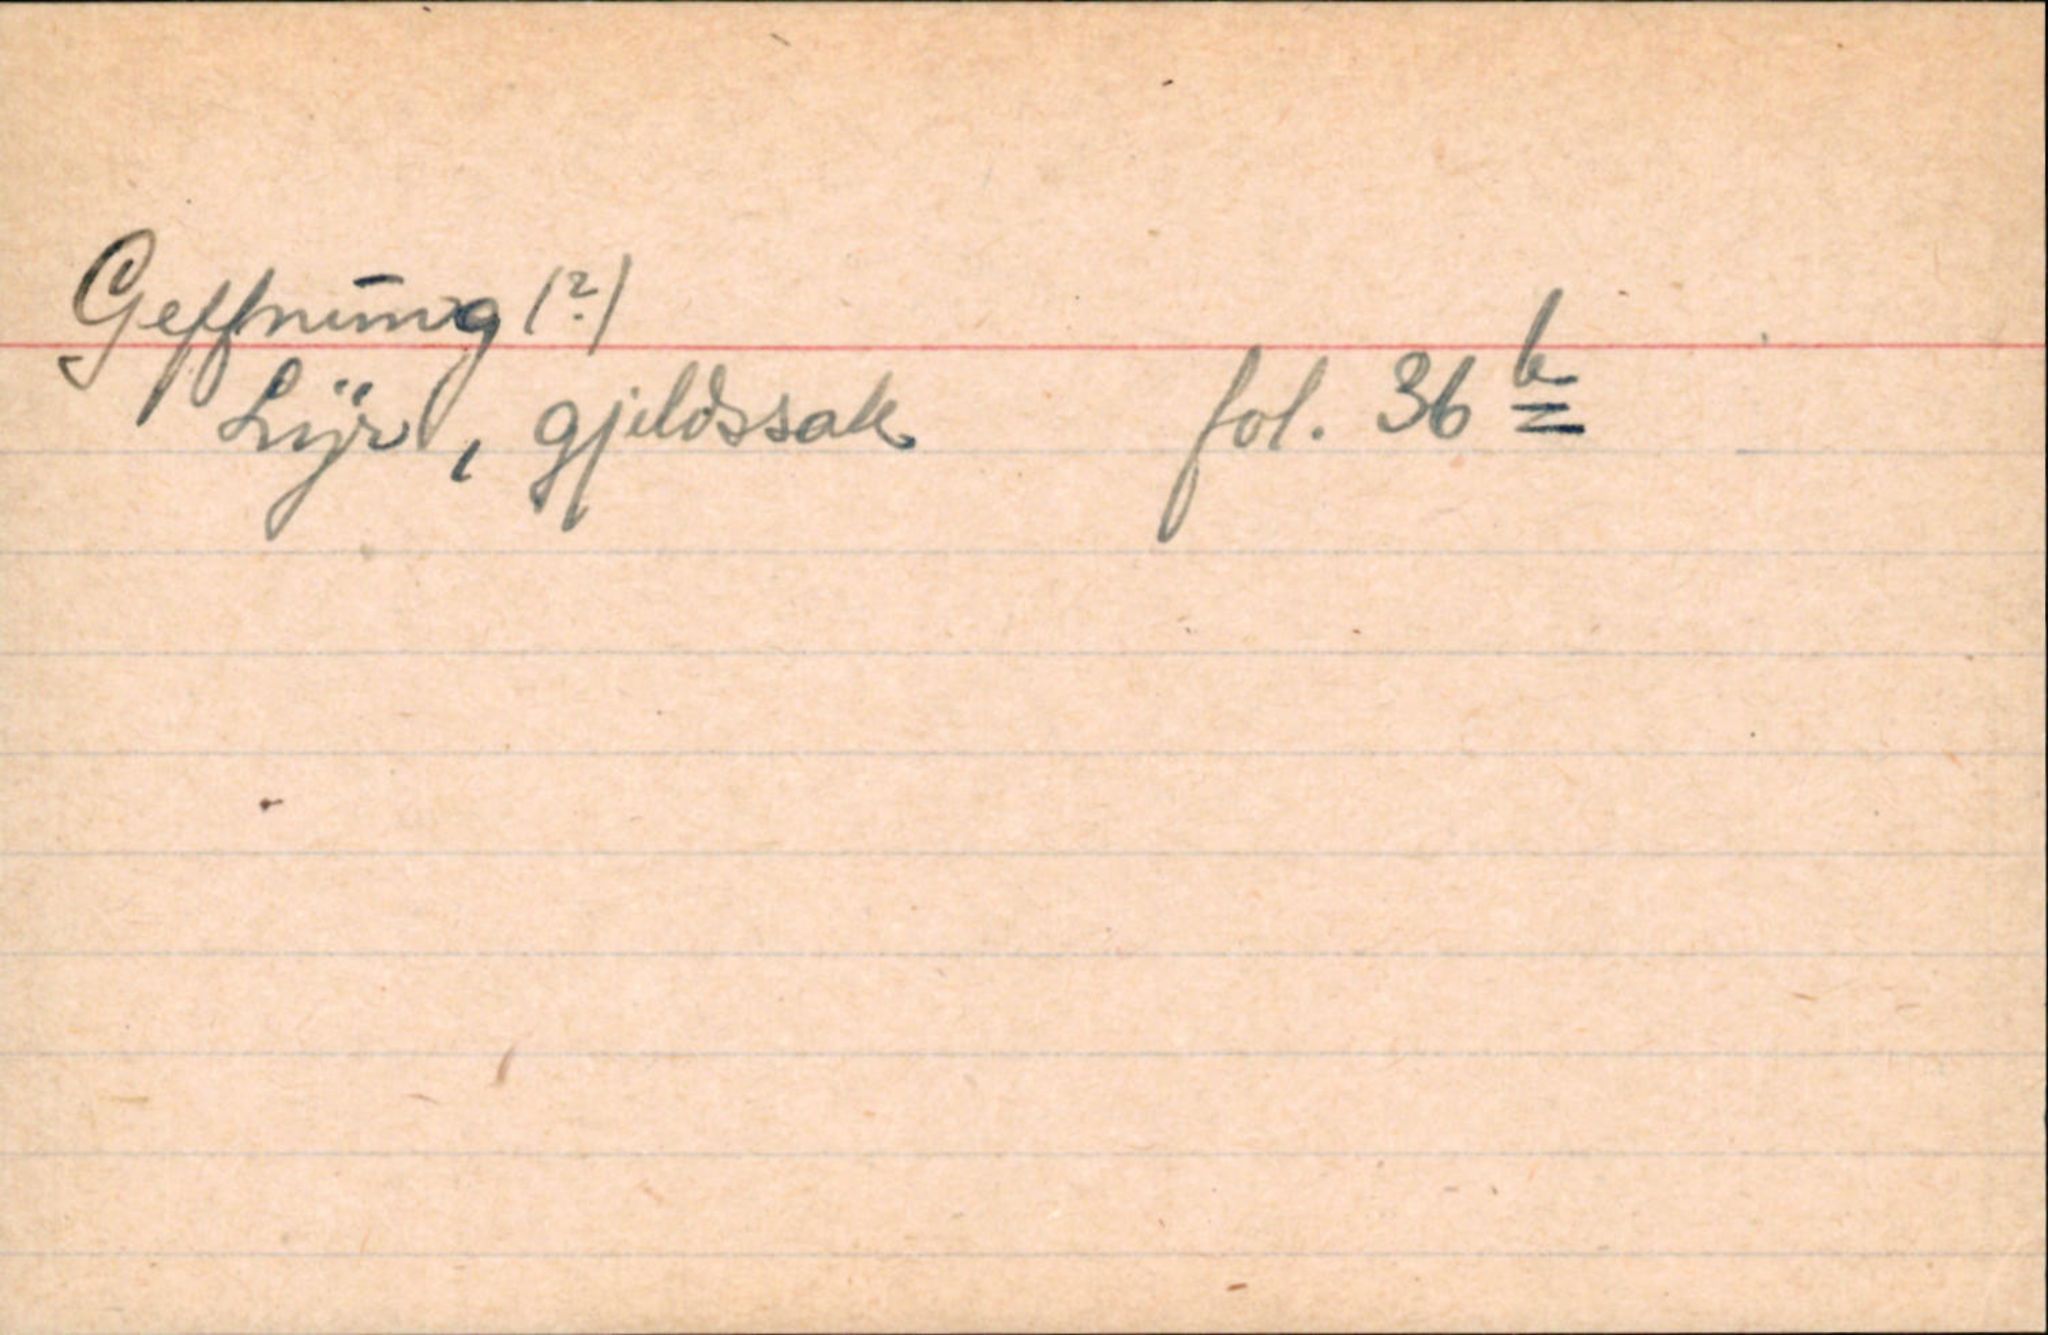 Geffnung (?)
Lÿr, gjeldssak fol. 36 b